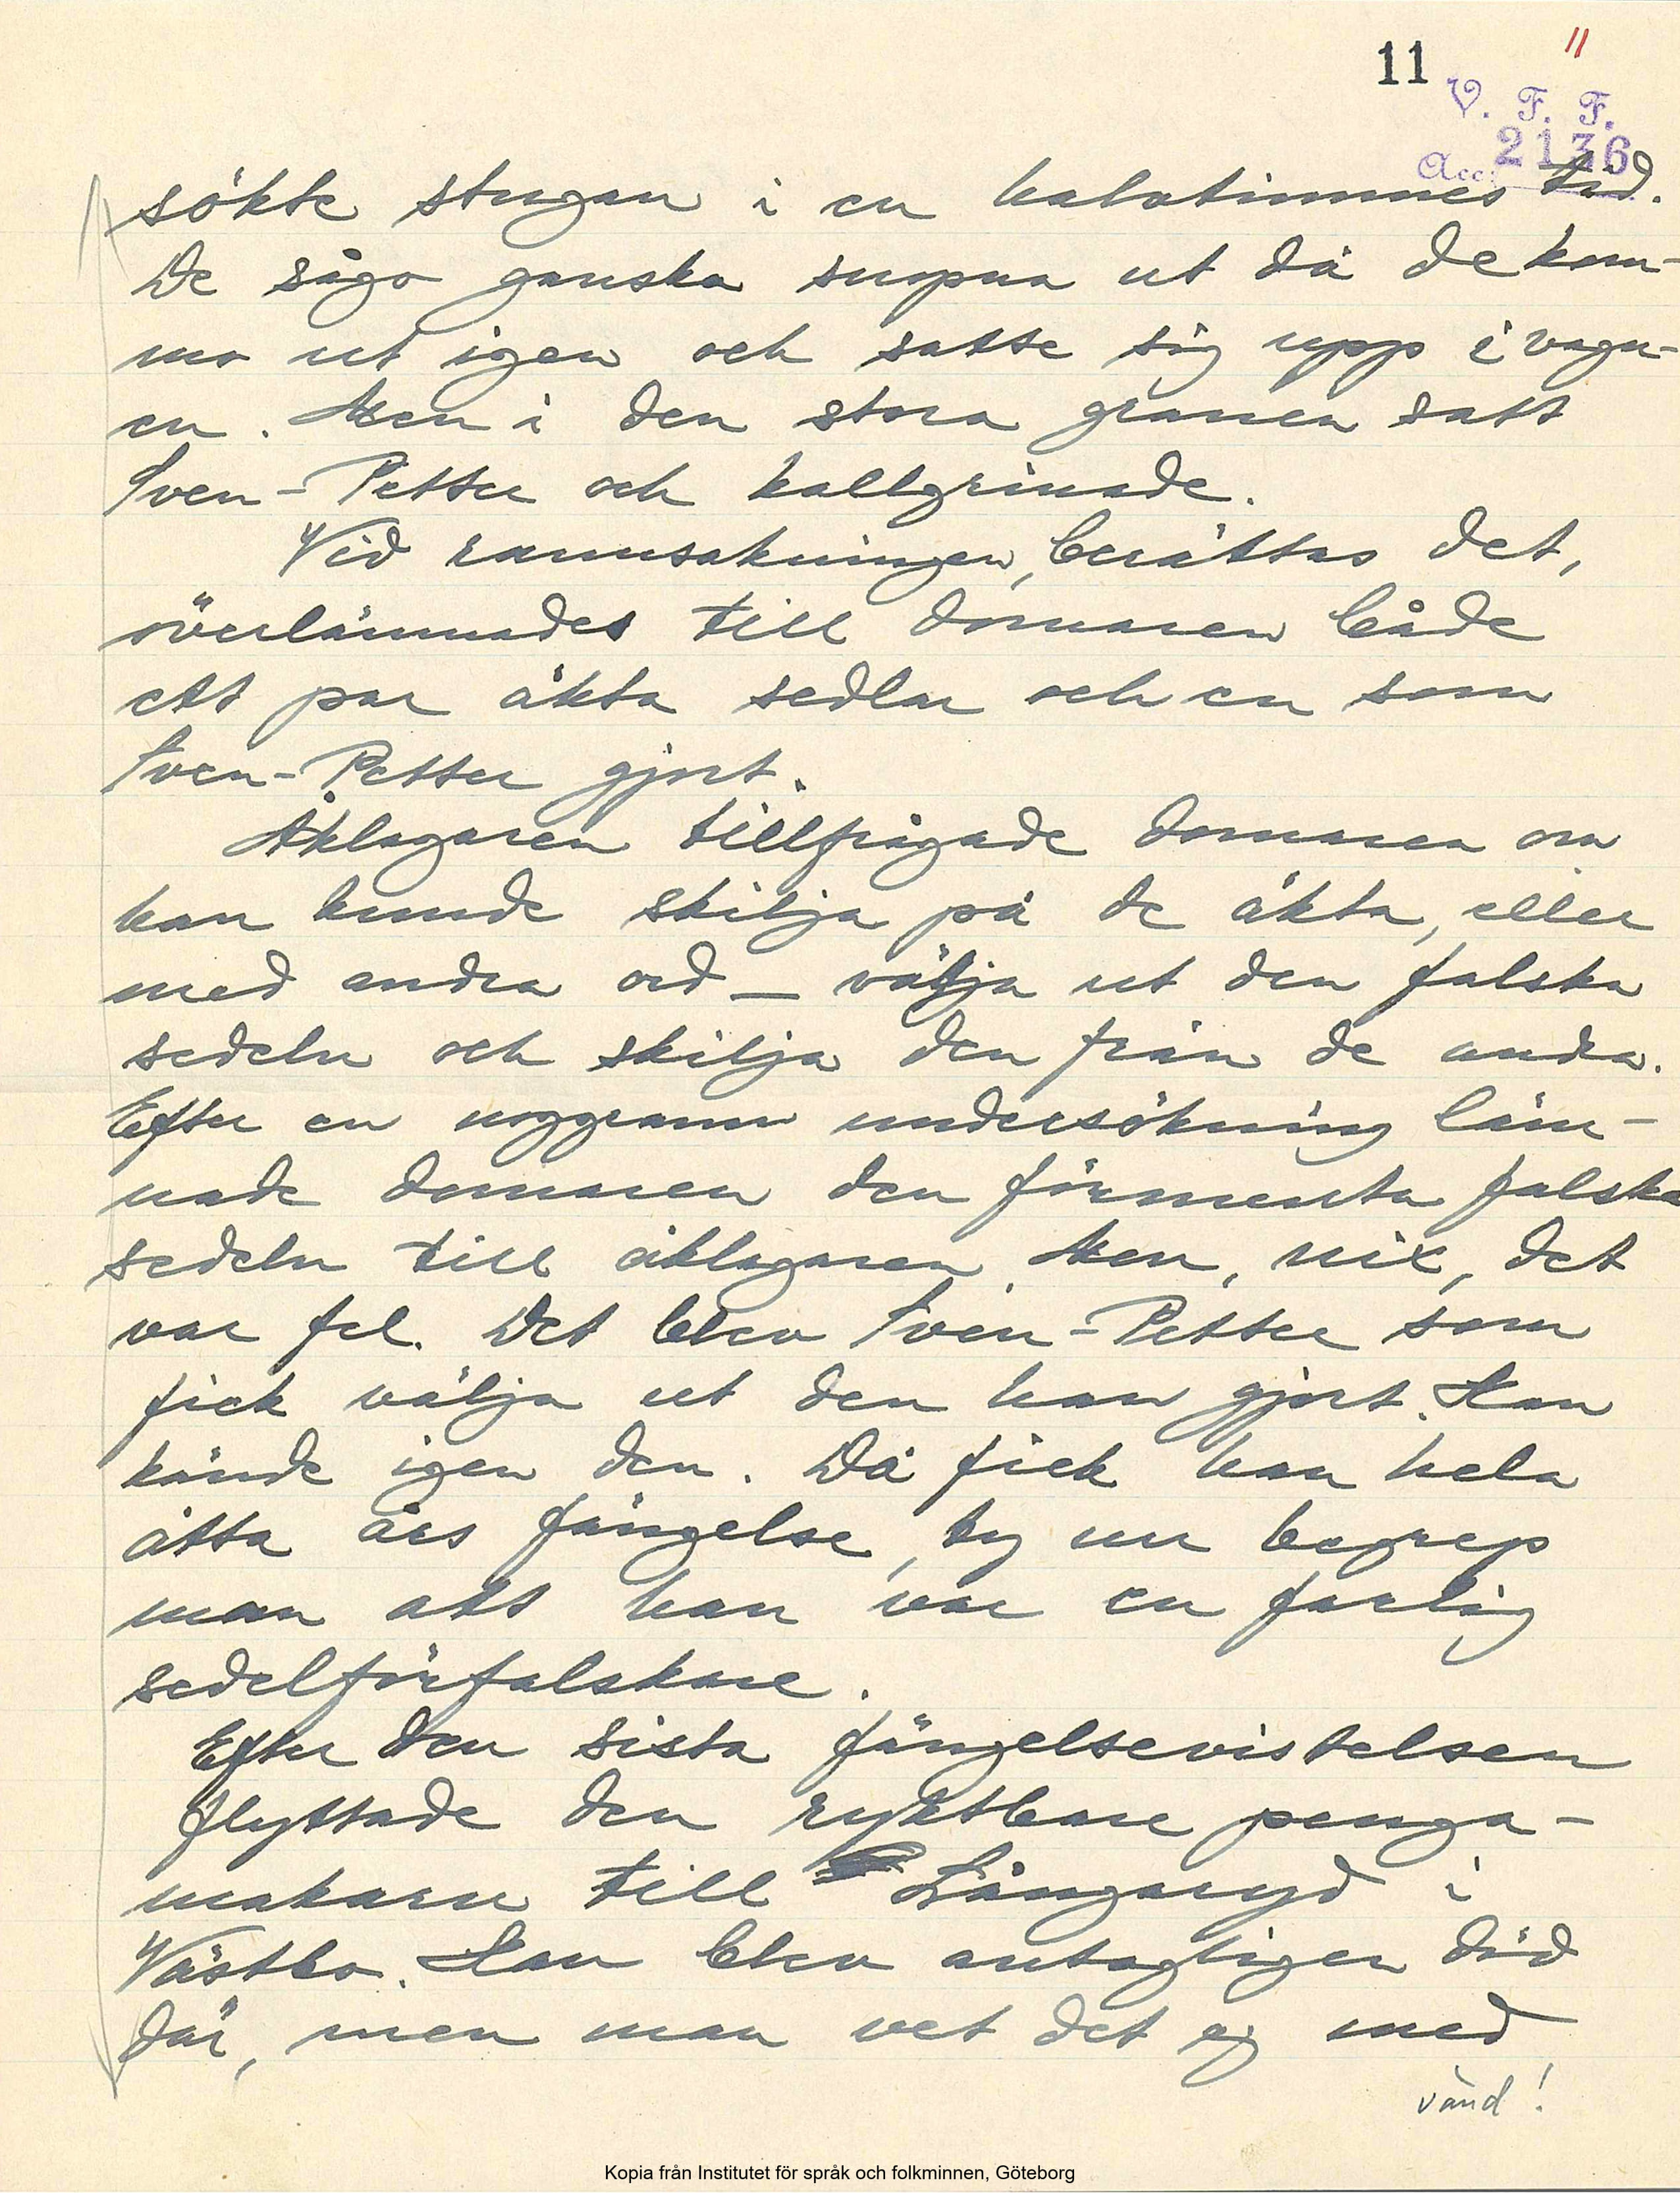 11
11
V. F. F.
Acc: 2136
sökte stugan i en halvtimmes tid.
De sågo ganska snopna ut då de kom-
mo ut igen och satte sig upp i vagn-
en. Men i den stora granen satt
Sven-Petter och kallgrinade.
Vid rannsakningen, berättas det,
överlämnades till domaren både
ett par äkta sedlar och en som
Sven-Petter gjort.
Åklagaren tillfrågade domaren om
han kunde skilja på de äkta, eller
med andra ord – välja ut den falska
sedeln och skilja den från de andra.
Efter en noggrann undersökning läm-
nade domaren den förmenta falska
sedeln till åklagaren. Men, nix, det
var fel. Det blev Sven-Petter som
fick välja ut den han gjort. Han
kände igen den. Då fick han hela
åtta års fängelse, ty nu begrep
man att han var en farlig
sedelförfalskare.
Efter den sista fängelsevistelsen
flyttade den ryktbare penga-
makaren till Långaryd i
Västbo. Han blev antagligen död
där, men man vet det ej med
vänd!
Kopia från Institutet för språk och folkminnen, Göteborg